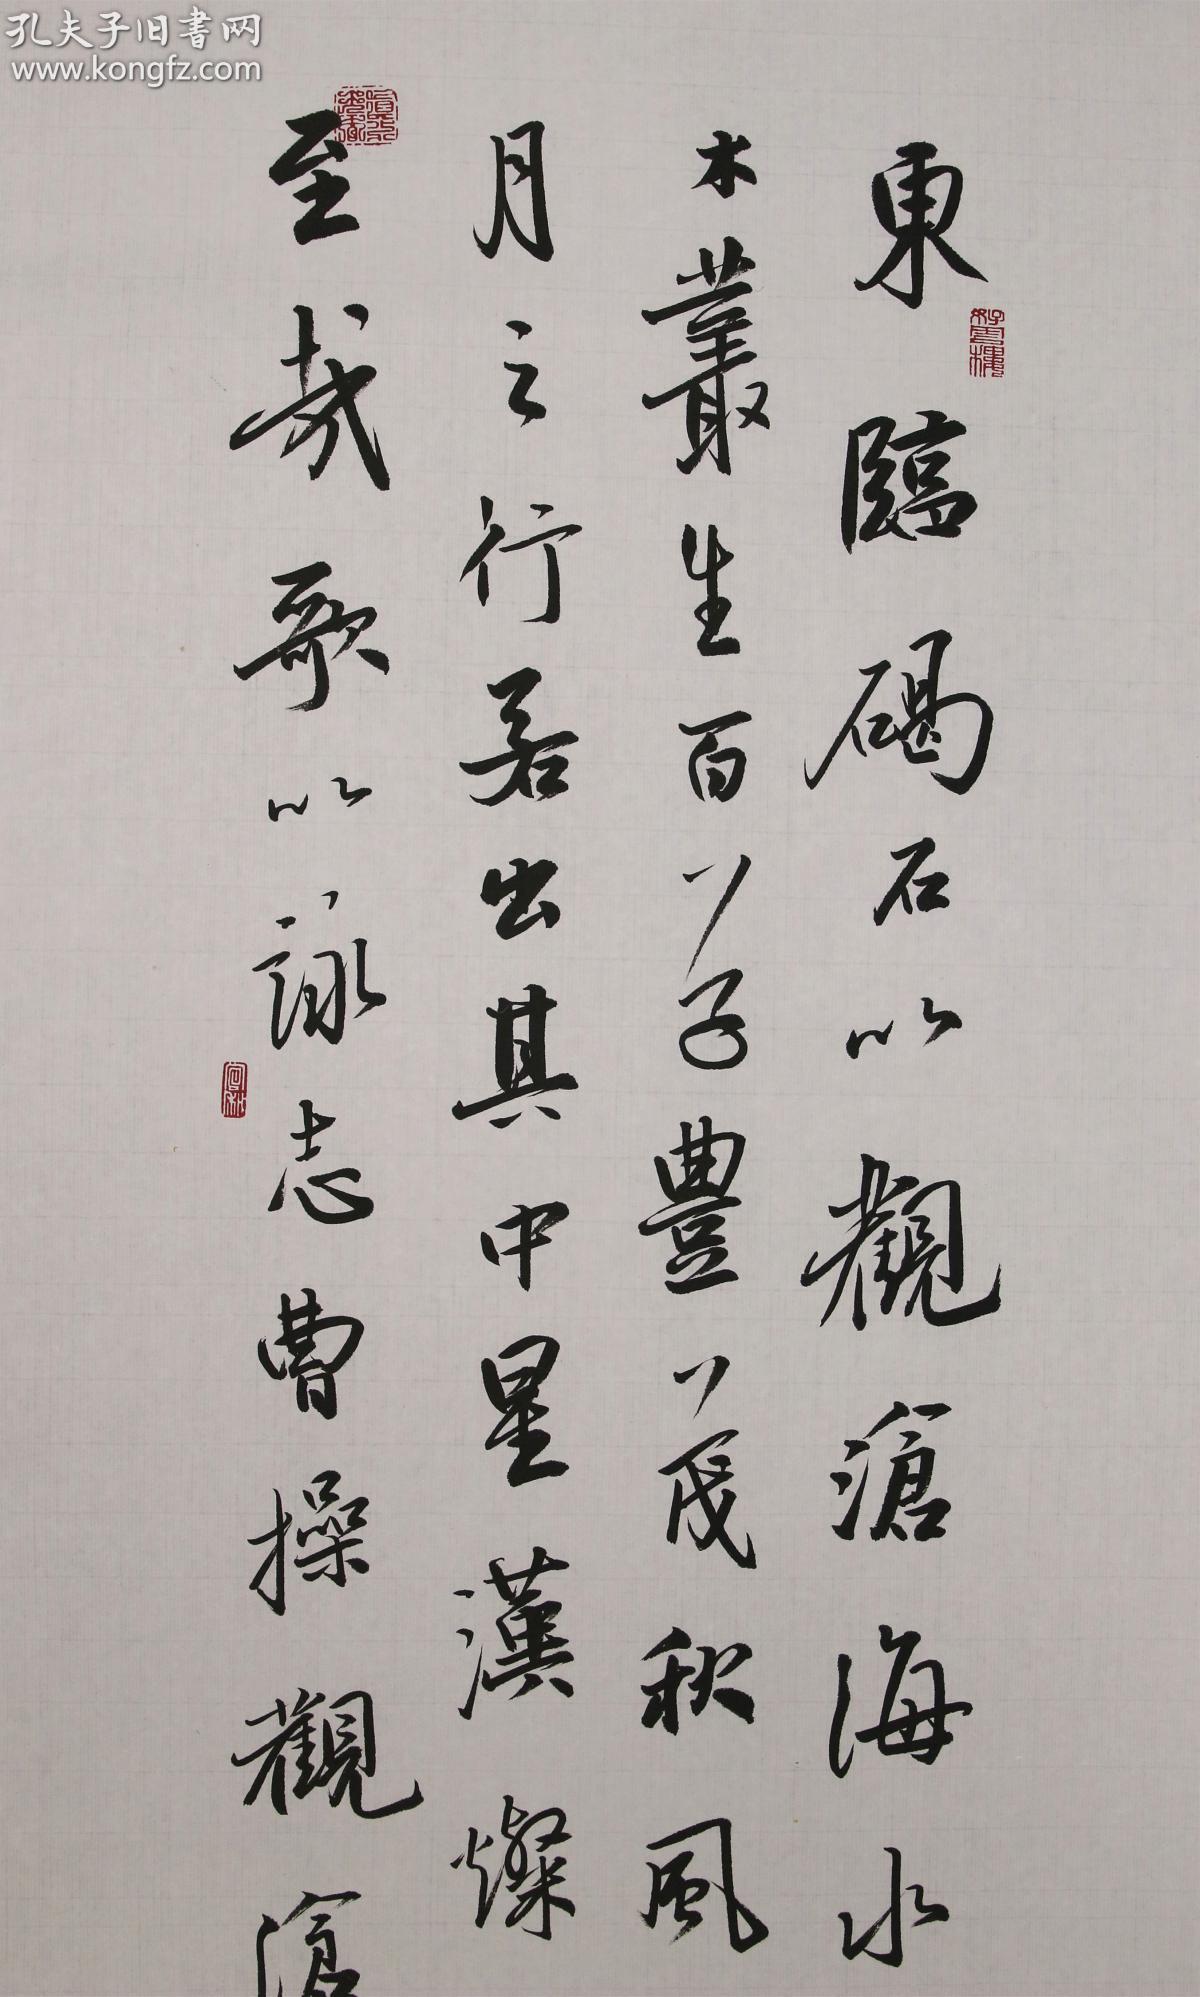 孔夫子旧書网
www.kongfz.com
東臨碣石以觀滄海水
木叢生百草豐茂秋風
月之行若出其中星漢燦
至哉歌以詠志曹操觀滄